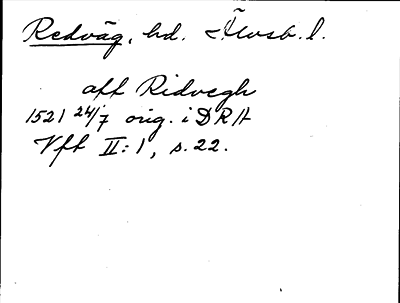 Redväg, hd. Älvsb. l.
aff Ridvegh
1521 24/7 orig. i DRA
Vft II:1, s. 22.